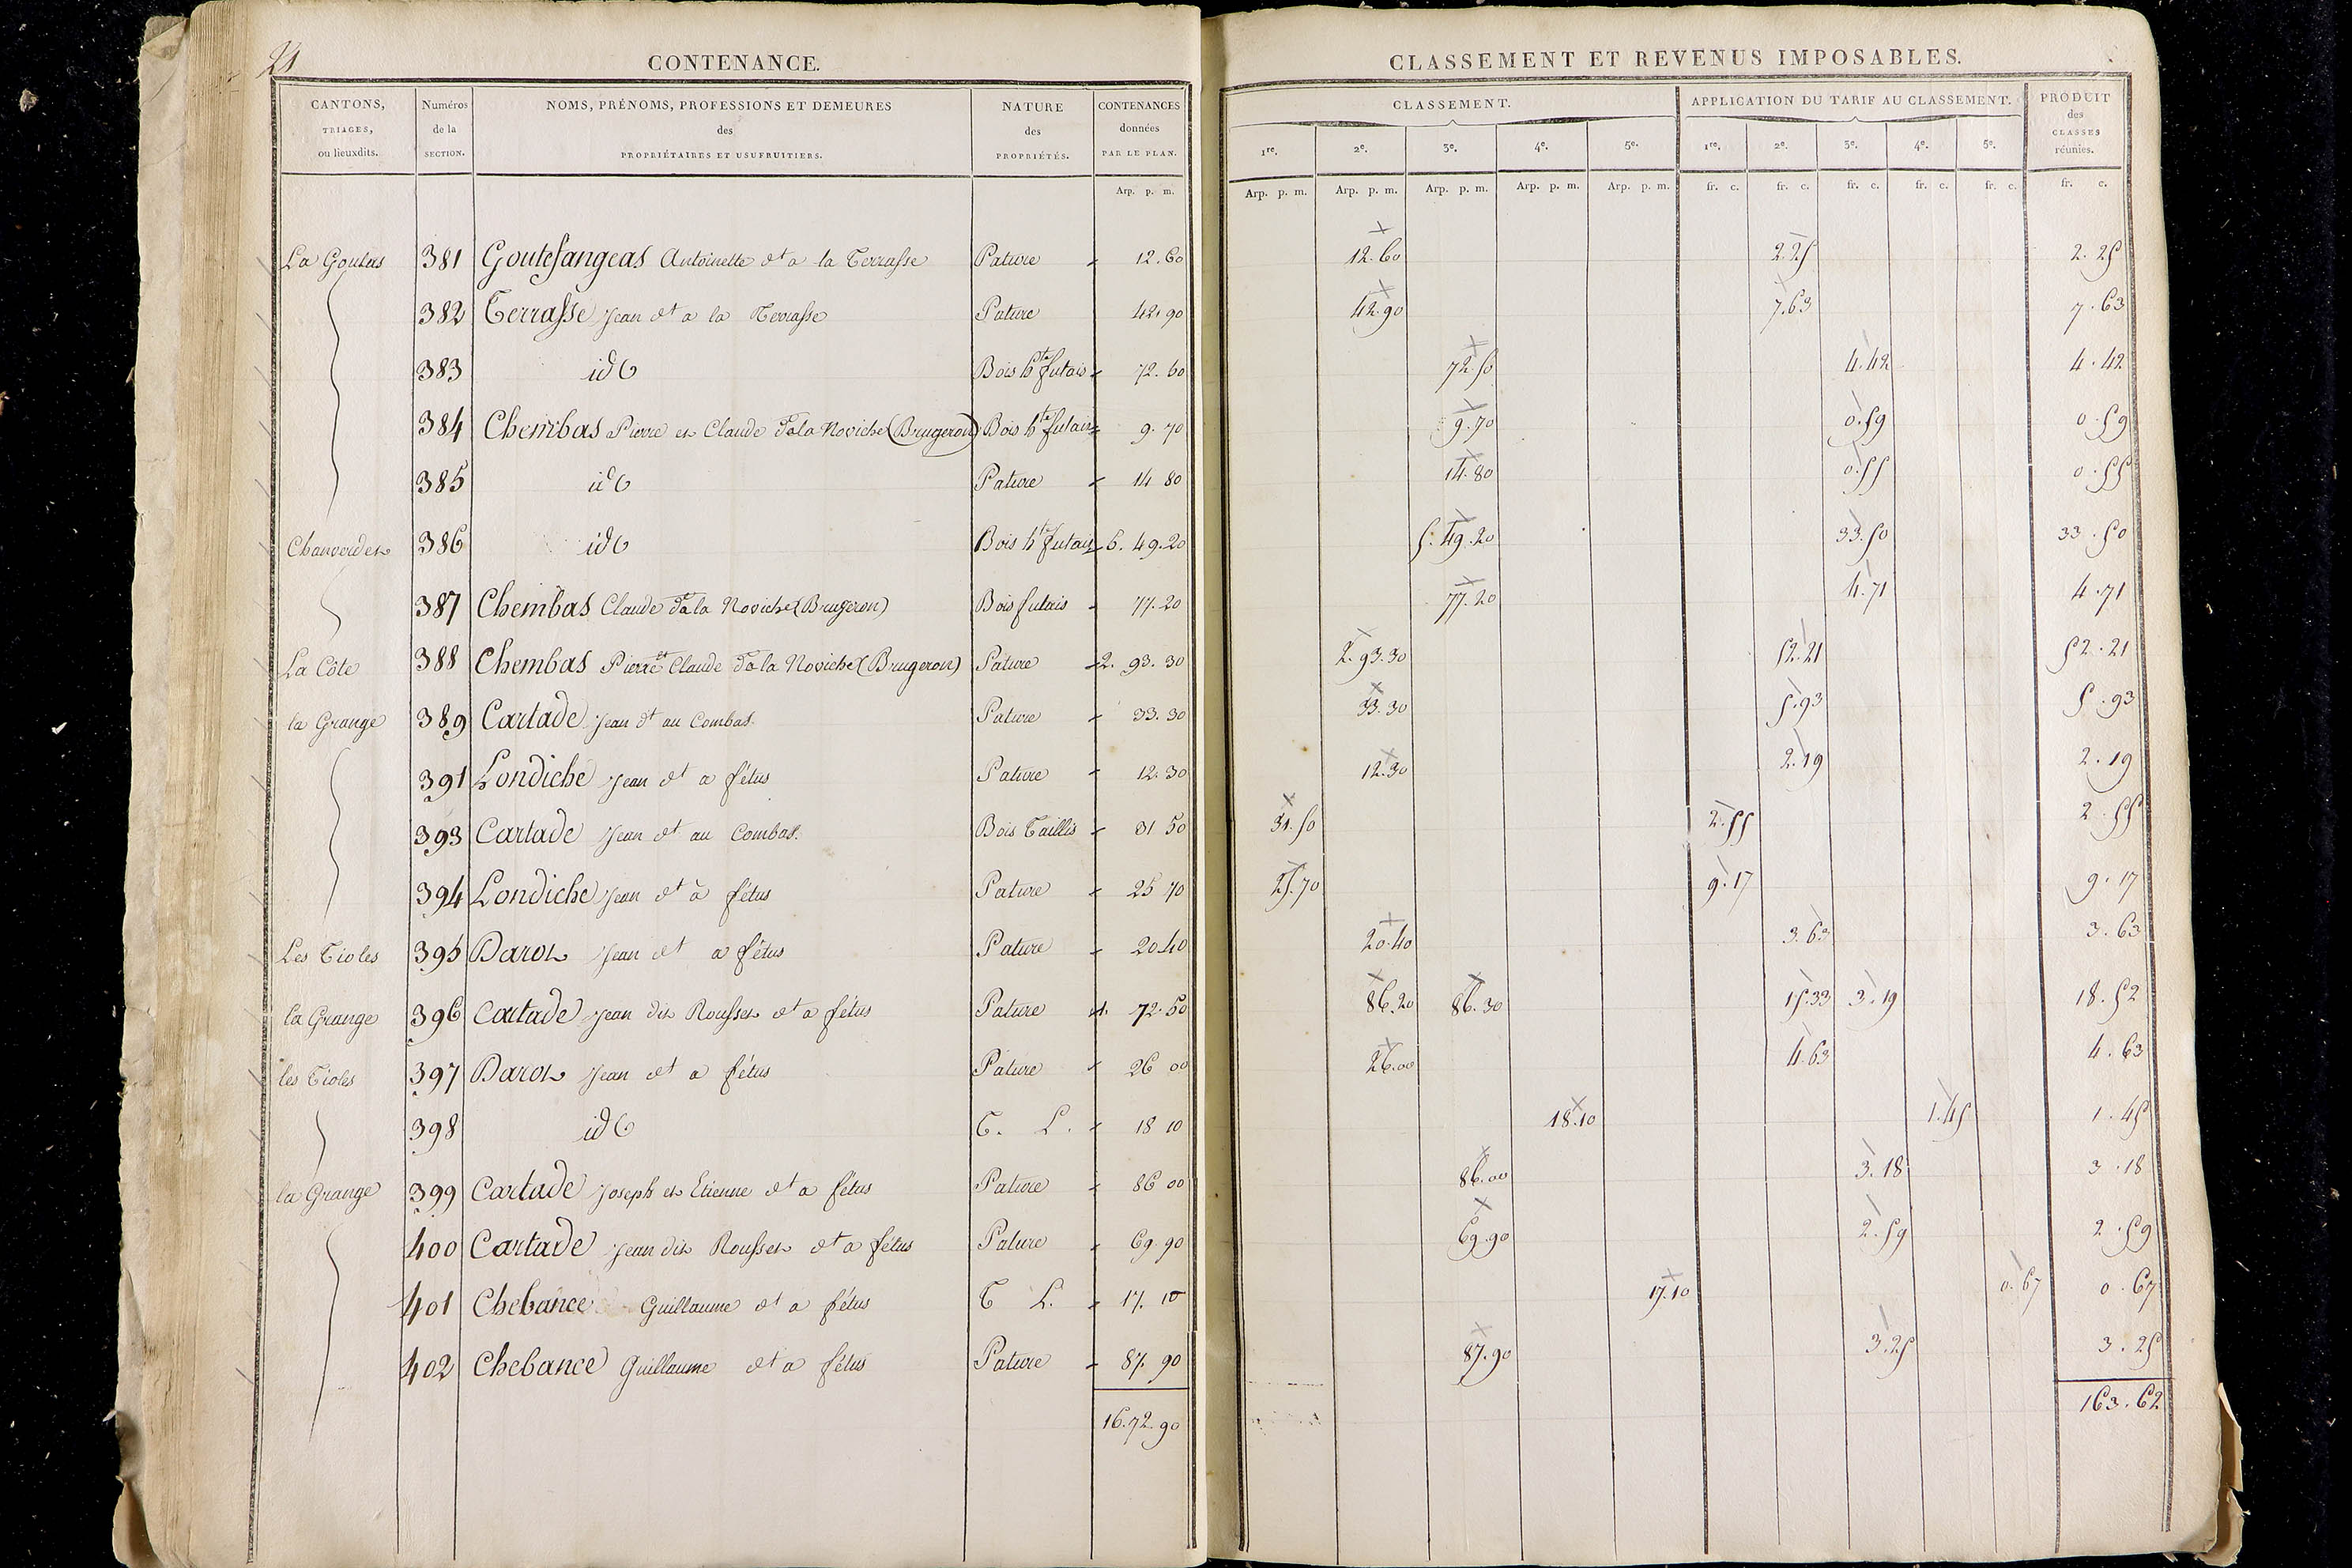 21
CONTENANCE.
CANTONS, TRIAGES, ou lieuxdits. Numéros de la SECTION. NOMS, PRÉNOMS, PROFESSIONS ET DEMEURES des PROPRIÉTAIRES ET USUFRUITIERS. NATURE des PROPRIÉTÉS. CONTENANCES données PAR LE PLAN.
Arp. p. m.
La Goulas 381 Goutefangeas Antoinette dt a la Terrasse Pature 12.60
382 Terrasse Jean dt a la Terrasse Pature 42.90
383 id Bois hte futais 72.60
384 Chembas Pierre et Claude dt a la Noviche (Brugeron) Bois hte futais 9.70
385 id Pature 14 80
Chauverdet 386 id Bois hte futais 5.49.20
387 Chembas Claude dt a la Noviche (Brugeron) Bois futais 77.20
La Côte 388 Chembas Pierre et Claude dt a la Noviche (Brugeron) Pature 2.93.30
la Grange 389 Cartade Jean dt au Combas. Pature 33.30
391 Londiche Jean dt a fétus Pature 12.30
393 Cartade Jean dt au Combas. Bois Taillis 31 50
394 Londiche Jean dt à fétus Pature 25 70
Les Tioles 395 Darot Jean dt a fétus Pature 20.40
la Grange 396 Cartade Jean dit Rousset dt a fétus Pature 1. 72.50
les Tioles 397 Darot Jean dt a fétus Pature 26 00
398 id T. L. 18 10
la Grange 399 Cartade Joseph et Etienne dt a fétus Pature 86 00
400 Cartade Jean dit Rousset dt a fétus Pature 69.90
401 Chebance Guillaume dt a fétus T L. 17. 10
402 Chebance Guillaume dt a fétus Pature 87. 90
16.72.90
CLASSEMENT ET REVENUS IMPOSABLES.
CLASSEMENT. APPLICATION DU TARIF AU CLASSEMENT. PRODUIT des CLASSES réunies.
1re. 2e. 3e. 4e. 5e. 1re. 2e. 3e. 4e. 5e.
Arp. p. m. Arp. p. m. Arp. p. m. Arp. p. m. Arp. p. m. fr. c. fr. c. fr. c. fr. c. fr. c. fr. c.
12.60 2.25 2.25
42.90 7.63 7.63
72.50 4.42 4.42
9.70 0.59 0.59
14.80 0.55 0.55
5.49.20 33.50 33.50
77.20 4.71 4.71
2.93.30 52.21 52.21
33.30 5.93 5.93
12.30 2.19 2.19
31.50 2.55 2.55
25.70 9.17 9.17
20.40 3.63 3.63
86.20 86.30 15.33 3.19 18.52
26.00 4.63 4.63
18.10 1.45 1.45
86.00 3.18 3.18
69.90 2.59 2.59
17.10 0.67 0.67
87.90 3.25 3.25
163.62